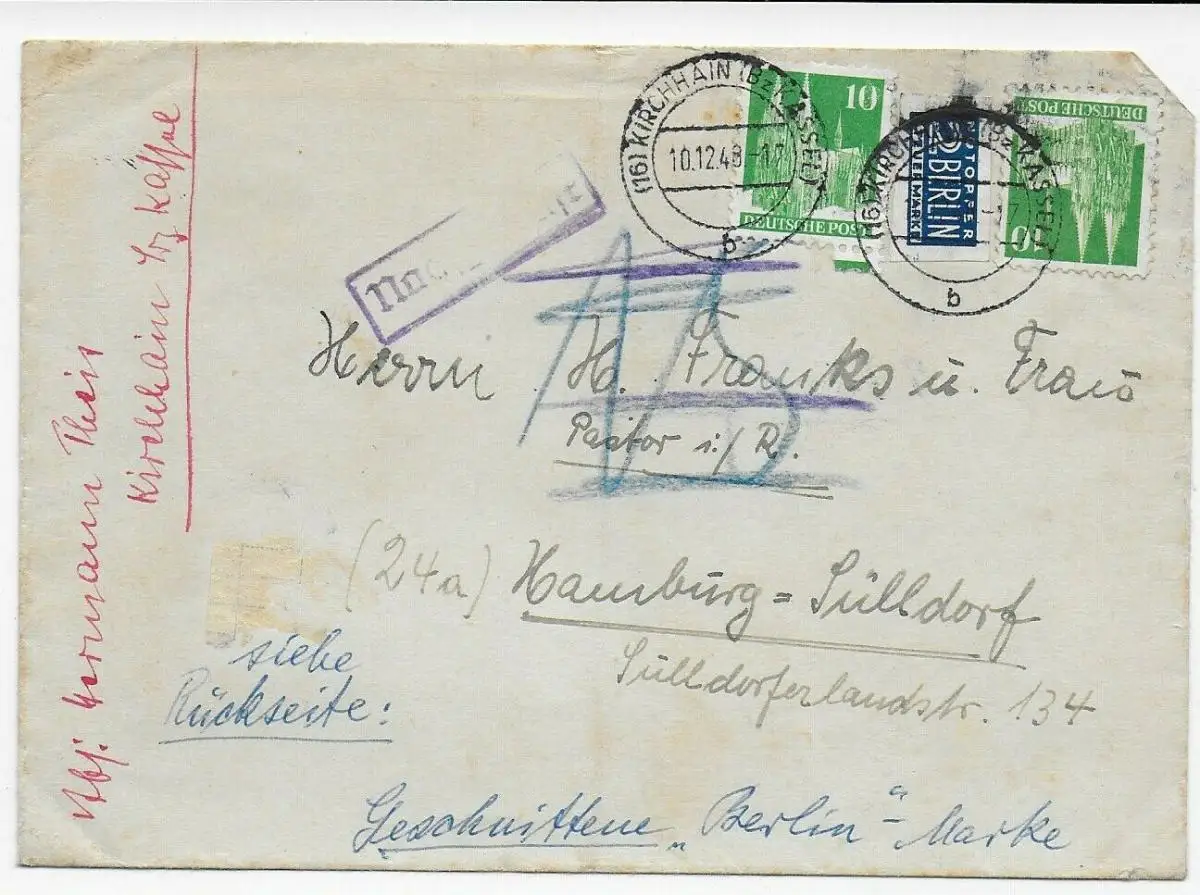 (16) KIRCHHAIN (Bz. KASSEL)
10.12.48.-17
b
10
DEUTSCHE POST
NOTOPFER
2 BERLIN
STEUERMARKE
DEUTSCHE POST
10
(16) KIRCHHAIN (Bz. KASSEL)
-17
b
Herrn H. Franks u. Frau
Pastor i./R.
(24a) Hamburg=Sülldorf
Sülldorferlandstr. 134
Abs: Hermann Thein
Kirchhain Bz Kassel
siehe
Rückseite:
Geschnittene „Berlin"-Marke